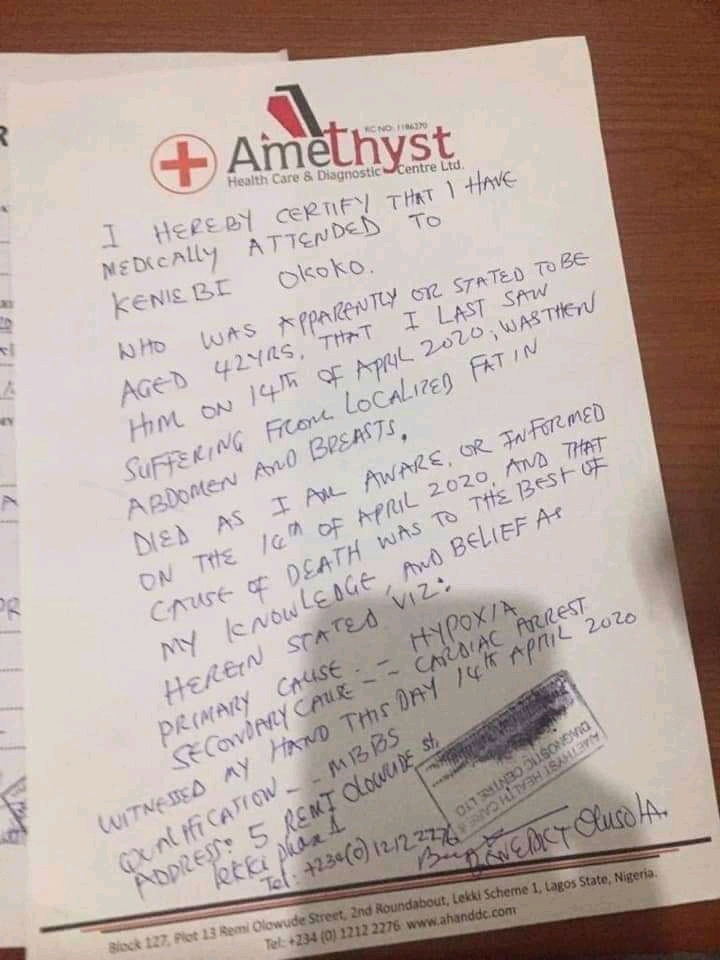 RC NO: 1186270
Amethyst
Health Care & Diagnostic Centre Ltd.
I HEREBY CERTIFY THAT I HAVE
MEDICALLY ATTENDED TO
KENIEBI OKOKO.
WHO WAS APPARENTLY OR STATED TO BE
AGED 42YRS, THAT I LAST SAW
HIM ON 14TH OF APRIL 2020, WAS THEN
SUFFERING FROM LOCALIZED FAT IN
ABDOMEN AND BREASTS.
DIED AS I AM AWARE, OR INFORMED
ON THE 14TH OF APRIL 2020, AND THAT
CAUSE OF DEATH WAS TO THE BEST OF
MY KNOWLEDGE, AND BELIEF AS
HEREIN STATED VIZ:
PRIMARY CAUSE -- HYPOXIA
SECONDARY CAUSE -- CARDIAC ARREST
WITNESSED MY HAND THIS DAY 14TH APRIL 2020
QUALIFICATION -- MBBS
ADDRESS: 5 REMI OLOWUDE st,
lekki phase 1
Tel: +234(0)12122276
AMETHYST HEALTH CARE &
DIAGNOSTIC CENTRE LTD
BENEDICT OLUSOLA.
Block 127, Plot 13 Remi Olowude Street, 2nd Roundabout, Lekki Scheme 1, Lagos State, Nigeria.
Tel: +234 (0) 1212 2276 www.ahanddc.com